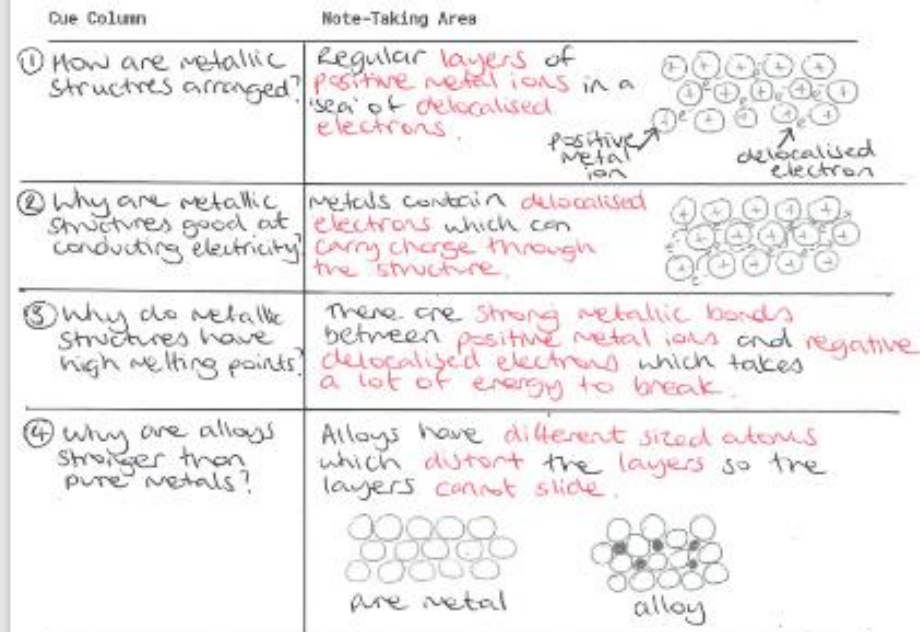 Cue Column
Note-Taking Area
① How are metallic
structres arranged?
Regular layers of
positive metal ions in a
'sea' of delocalised
electrons.
positive
metal
ion
delocalised
electron
② Why are metallic
structures good at
conducting electricity?
Metals contain delocalised
electrons which can
carry charge through
the structure.
③ Why do metallic
structures have
high melting points?
There are strong metallic bonds
between positive metal ions and negative
delocalised electrons which takes
a lot of energy to break.
④ Why are alloys
stronger than
pure metals?
Alloys have different sized atoms
which distort the layers so the
layers cannot slide.
pure metal
alloy